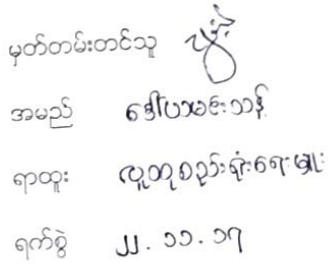 မှတ်တမ်းတင်သူ
အမည် ဒေါ်ယမင်းသန့်
ရာထူး လူထုစည်းရုံးရေးမှူး
ရက်စွဲ ၂၂.၁၁.၁၇